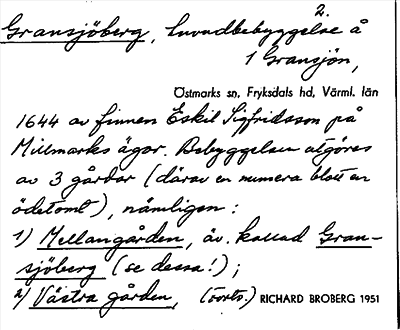 2.
Gransjöberg, huvudbebyggelse å
1 Gransjön,
Östmarks sn, Fryksdals hd, Värml. län
1644 av finnen Eskil Sigfridsson på
Millmarks ägor. Bebyggelsen utgöres
av 3 gårdar (därav en numera blott en
ödetomt), nämligen:
1) Mellangården, äv. kallad Gran-
sjöberg (se dessa!);
2) Västra gården, (forts.) RICHARD BROBERG 1951